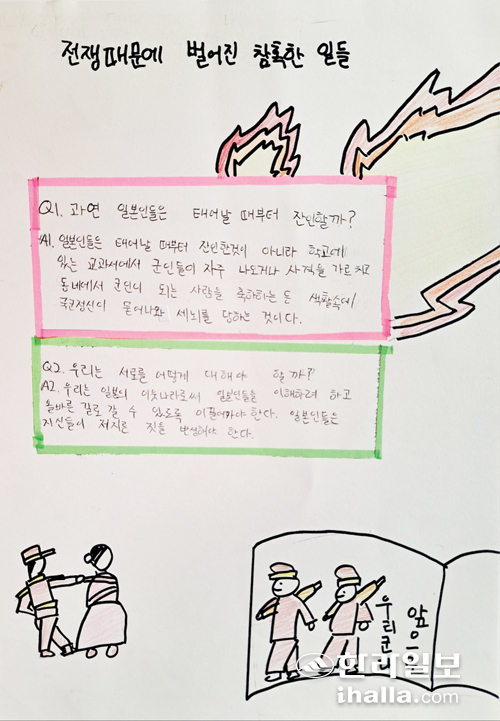 전쟁때문에 벌어진 참혹한 일들
Q1. 과연 일본인들은 태어날 때부터 잔인할까?
A1. 일본인들은 태어날 때부터 잔인한것이 아니라 학교에
있는 교과서에서 군인들이 자주 나오거나 사격을 가르치고
동네에서 군인이 되는 사람을 축하하는 등 생활속에
국군정신이 묻어나와 세뇌를 당하는 것이다.
Q2. 우리는 서로를 어떻게 대해야 할까?
A2. 우리는 일본의 이웃나라로써 일본인들을 이해하려 하고
올바른 길로 갈 수 있도록 이끌어줘야 한다. 일본인들은
자신들이 저지른 짓을 반성해야 한다.
앞으로
우리군대
한라일보
ihalla.com